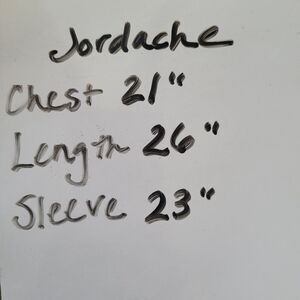 Jordache
Chest 21"
Length 26"
Sleeve 23"